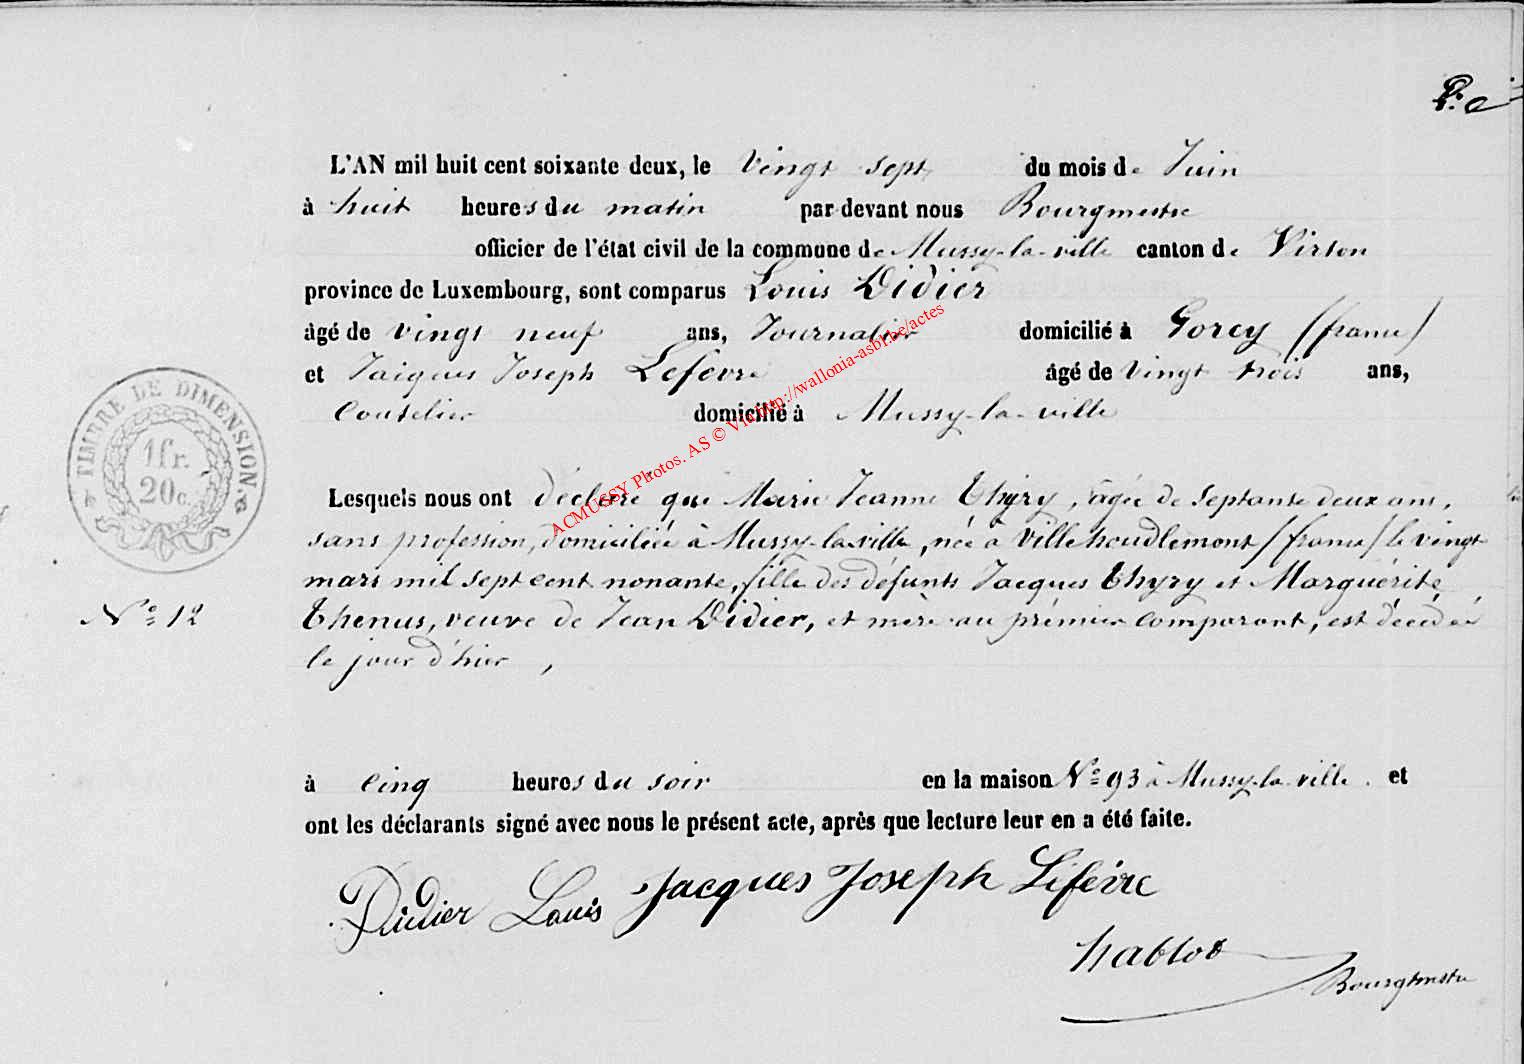 L'AN mil huit cent soixante deux, le vingt sept du mois de Juin
à huit heures du matin par devant nous Bourgmestre
officier de l'état civil de la commune de Mussy-la-ville canton de Virton
province de Luxembourg, sont comparus Louis Didier
âgé de vingt neuf ans, Journalier domicilié à Gorcy (france)
et Jacques Joseph Lefevre âgé de vingt trois ans,
Coutelier domicilié à Mussy-la-ville
TIMBRE DE DIMENSION
1 fr.
20 c.
ACMUSSY Photos. AS © Via http://wallonia-asbl.be/actes
Lesquels nous ont déclaré que Marie Jeanne Thyry, agée de septante deux ans,
sans profession, domiciliée à Mussy-la-ville, née à Villehoudlemont (france) le vingt
mars mil sept cent nonante, fille des défunts Jacques Thyry et Marguérite
N° 12
Thenus, veuve de Jean Didier, et mère au prémier comparant, est décédée
le jour d'hier,
à cinq heures du soir en la maison N° 93 à Mussy-la-ville. et
ont les déclarants signé avec nous le présent acte, après que lecture leur en a été faite.
Didier Louis Jacques Joseph Lefévre
hablot
Bourgmestre